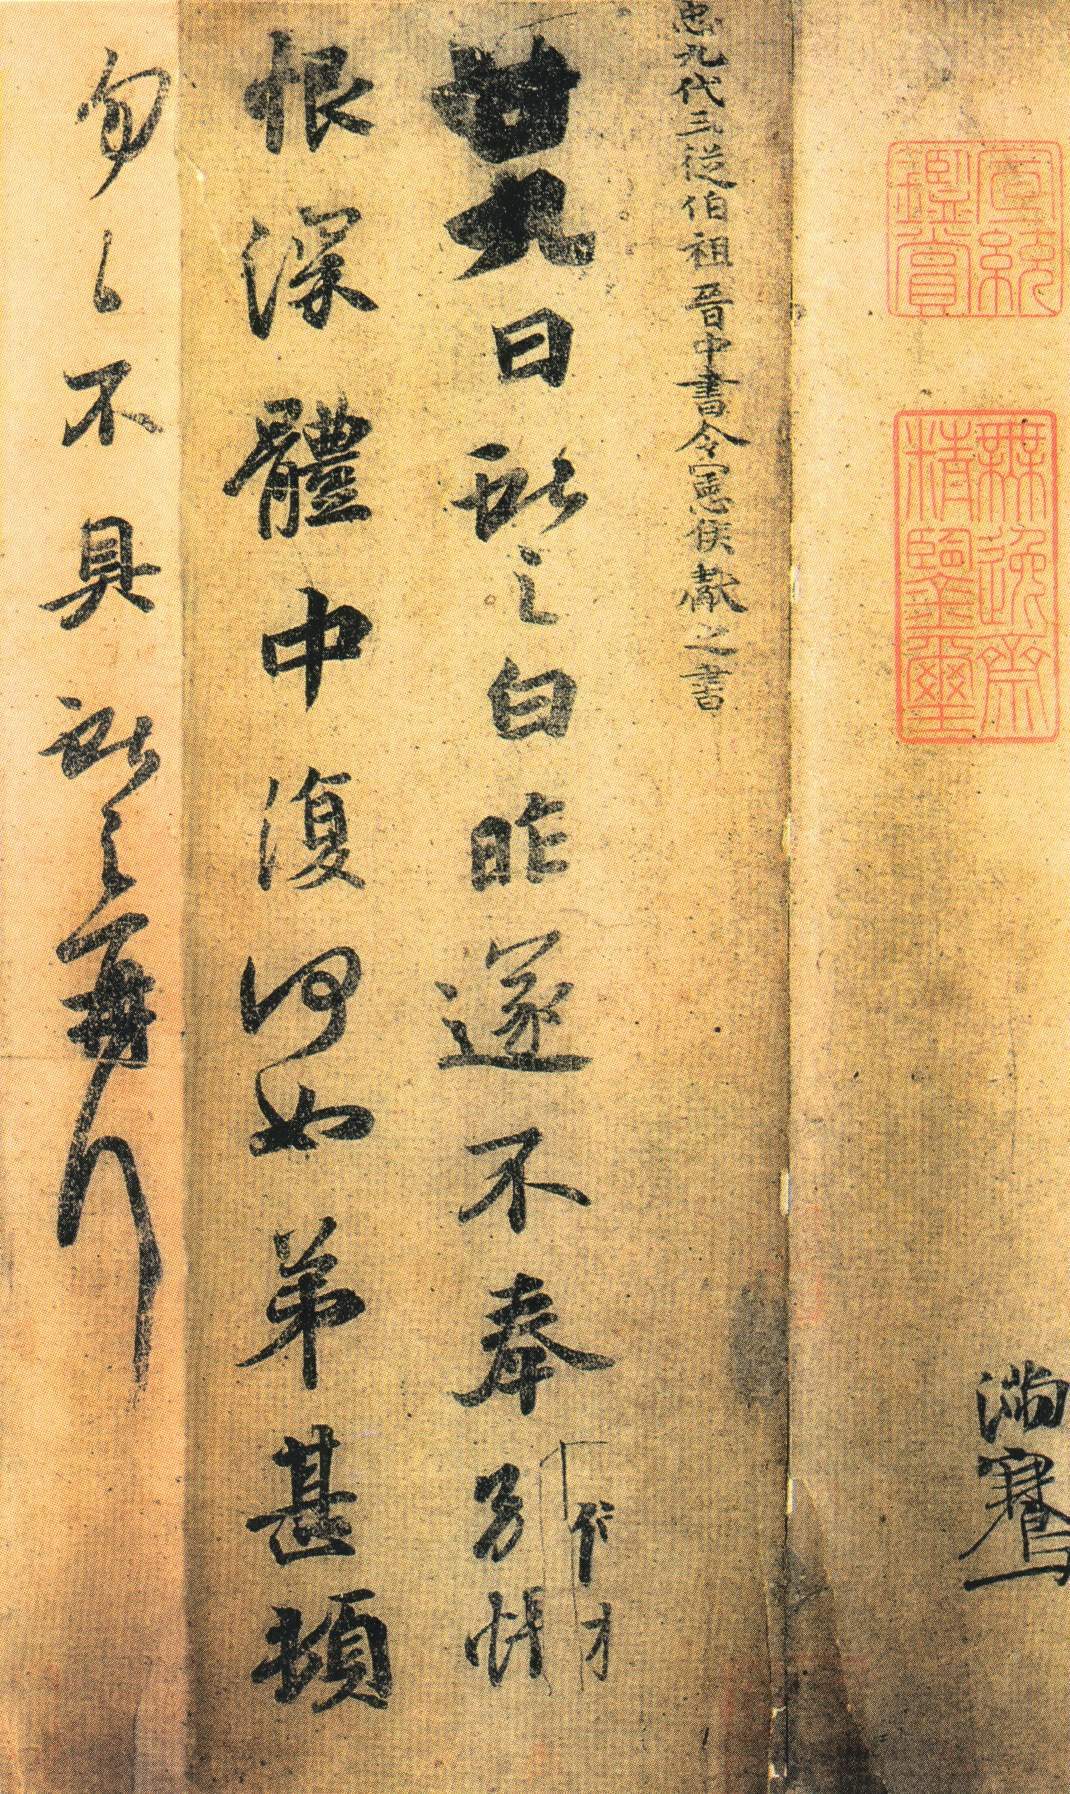 宣統
鑑賞
無逸齋
精鑒璽
滿騫
𢘑九代三從伯祖晉中書令憲侯獻之書
廿九日獻之白昨遂不奉別悵
恨深體中復何如弟甚頓
匆匆不具獻之再拜